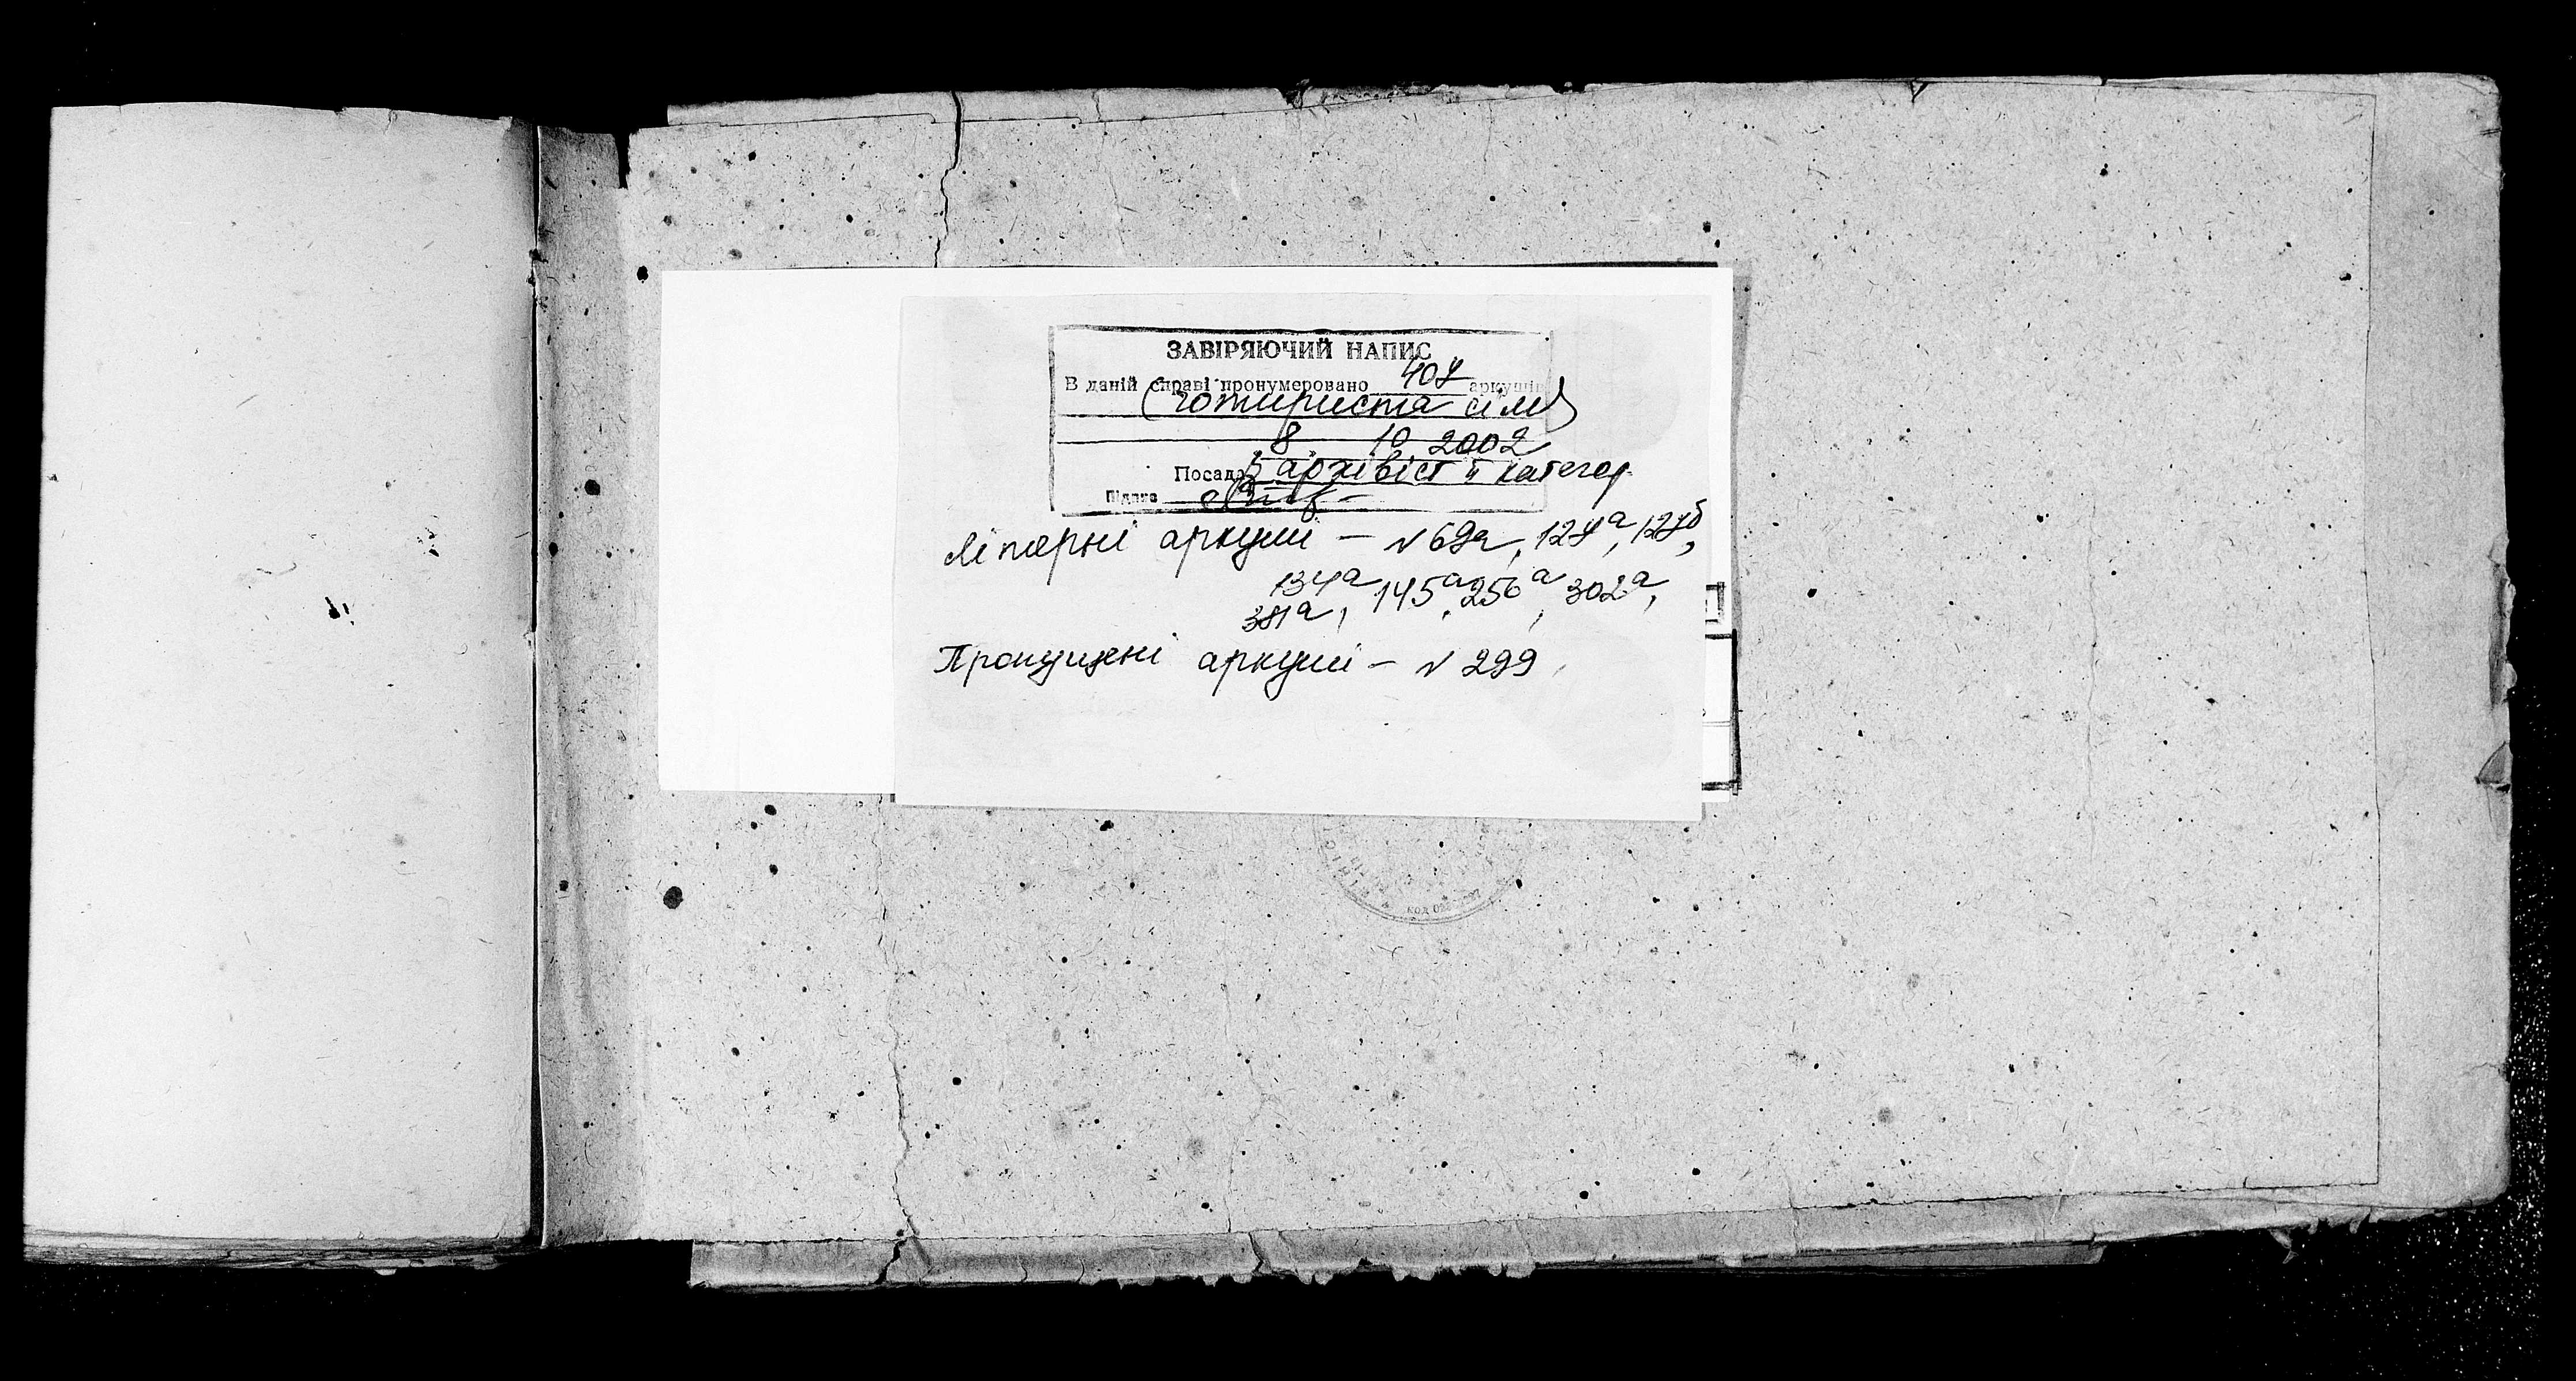 ЗАВІРЯЮЧИЙ НАПИС
В даній справі пронумеровано 407 аркушів
(чотириста сім)
8 10 2002
Посада архівіст II категор
Підпис
Літерні аркуші – № 69а, 127а, 127б,
134а, 145а, 256а, 302а,
381а,
Пропущені аркуші – № 299
код